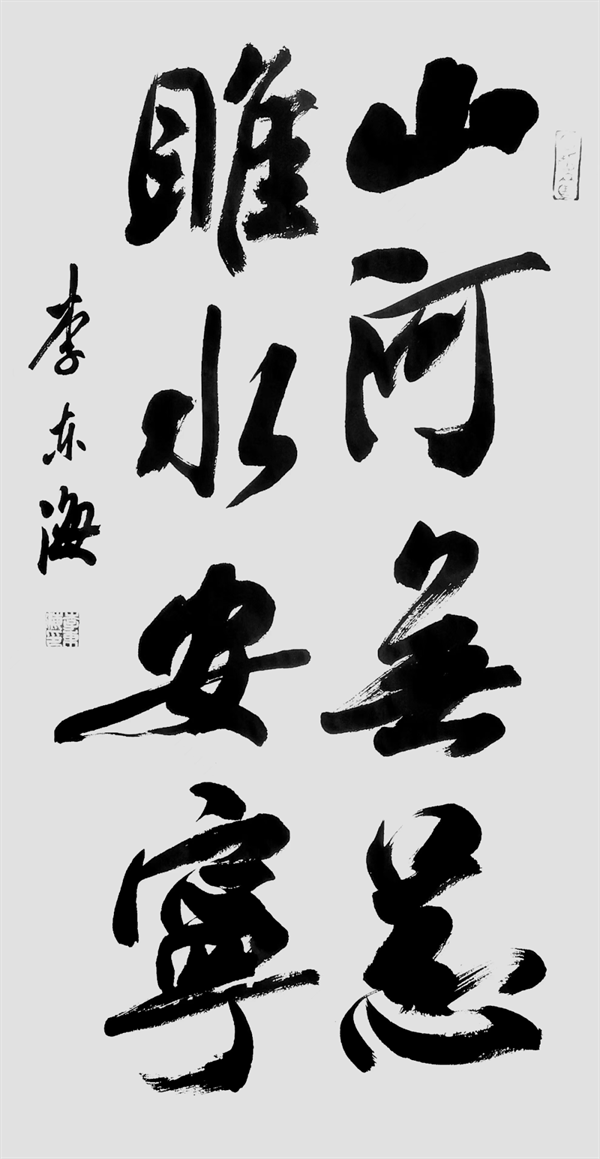 山河無恙
睢水安寧
李东海